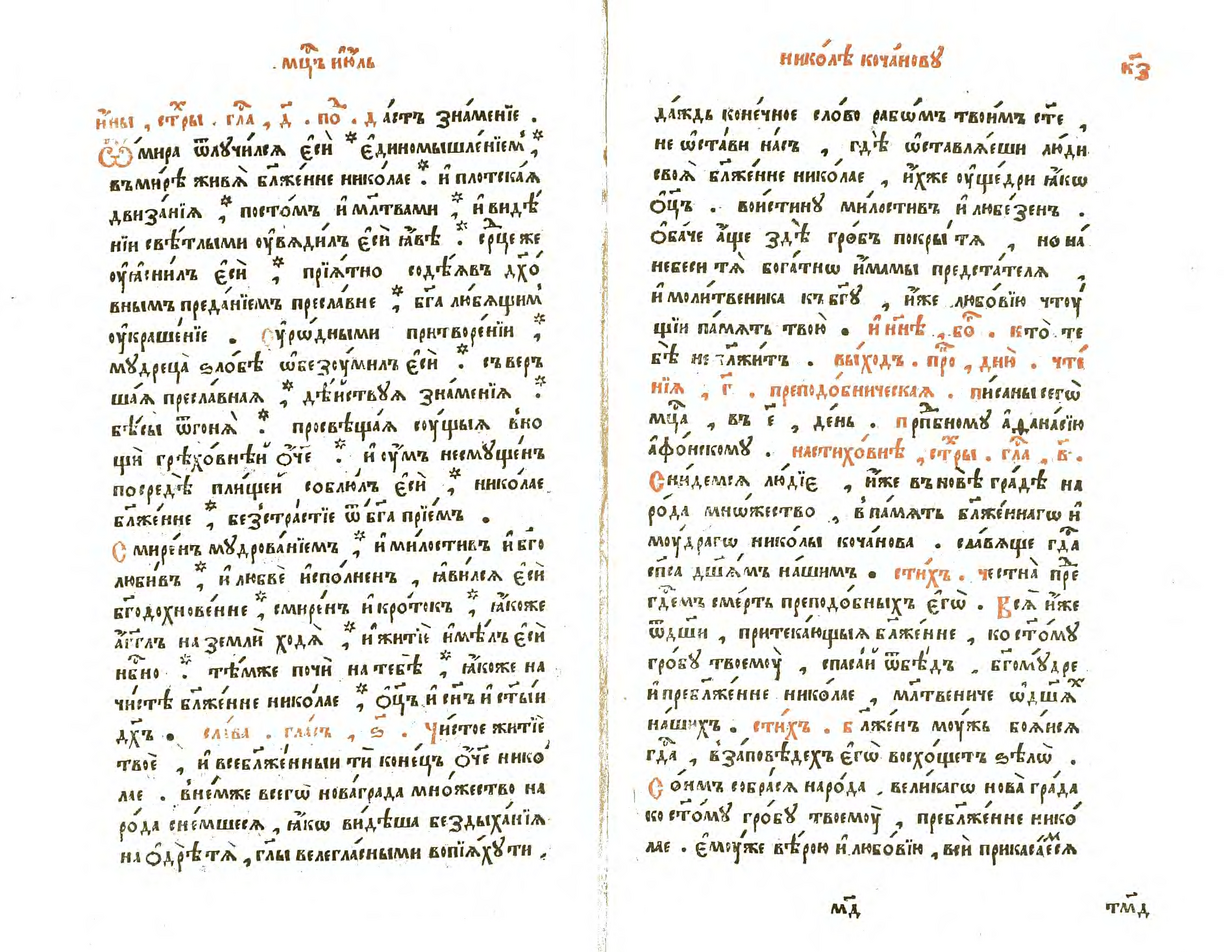 мц҃ъ ию҃ль
и҆́ны , стр҃ы . гла҃ , д҃ . по҃ . да́стъ зна́менїе .
Ѿ мира ѿлучи́лсѧ є҆сѝ * є҆диномышле́нїем ,*
въ ми́рѣ живѧ̀ бл҃же́нне нико́лае * и҆ плотска́ѧ
двиза́нїѧ ,* посто́мъ и҆ мл҃твами ,* и҆ видѣ́
нїи свѣ́тлыми оу҆вѧди́лъ є҆сѝ ꙗ҆́вѣ .* ср҃це же
оу҆ꙗсни́лъ є҆сѝ ,* прїѧ́тно содѣ́ѧвъ дх҃о́
внымъ преда́нїемъ пресла́вне ,* бг҃а лю́бѧщим
оу҆краше́нїе . Оу҆ро́дными притворе́нїи ,*
мудреца̀ ѕло́бѣ ѡ҆безоу́милъ є҆сѝ .* съверъ
ша́ѧ пресла́внаѧ ,* дѣ́йствуѧ зна́менїѧ .*
бѣ́сы ѿгонѧ̀ .* просвѣща́ѧ соу́щыѧ в но
щи грѣхо́внѣй ѻ҆́ч҃е .* и҆ оу҆́мъ несмуще́нъ
посредѣ̀ плище́й соблю́лъ є҆сѝ ,* николае
бл҃же́нне ,* безстра́стїе ѿ бг҃а прїе́мъ .
Смире́нъ мудрова́нїемъ ,* и҆ ми́лостивъ и҆ бг҃о
любивъ ,* и҆ любвѐ и҆спо́лненъ , ꙗ҆ви́лсѧ є҆сѝ
бг҃одохнове́нне ,* смире́нъ и҆ кро́токъ ,* ꙗ҆́коже
а҆́гг҃лъ на землѝ ходѧ̀ ,* и҆ житїѐ и҆мѣ́лъ є҆сѝ
нб҃но .* тѣ́мже почѝ на тебѣ̀ ,* ꙗ҆́коже на
чи́стѣ бл҃же́нне нико́лае ,* ѻ҆ц҃ъ и҆ сн҃ъ и҆ ст҃ы́и
дх҃ъ . сла́ва . гла́съ , ѕ҃ . Чи́стое житїѐ
твоѐ , и҆ всебл҃же́нныи ти коне́цъ ѻ҆́ч҃е нико́
лае . в не́мже всегѡ̀ нова́града мно́жество на
ро́да сне́мшесѧ , ꙗ҆́кѡ ви́дѣша бездыха́нїѧ
на ѻ҆дрѣ̀ тѧ̀ , гл҃ы велегла́сными вопїѧ́ху ти ,
нико́лѣ коча́нову к҃з
да́ждь коне́чное сло́во рабѡ́мъ твои́мъ ст҃е ,
не ѡ҆ста́ви на́съ , гдѣ̀ ѡ҆ставлѧ́еши лю́ди
своѧ̀ бл҃же́нне нико́лае , и҆́хже оу҆ще́дри ꙗ҆́кѡ
ѻ҆ц҃ъ . вои́стину ми́лостивъ и҆ любе́зенъ .
Ѻ҆ба́че а҆́ще здѣ̀ гро́бъ покры́ тѧ , но на́
небеси тѧ̀ бога́тнѡ и҆́мамы предста́телѧ ,
и҆ моли́твеника къ бг҃у , и҆́же любо́вїю чтоу́
щїи па́мѧть твою̀ . и҆ ны́нѣ , бо҃ . Кто̀ те
бѣ̀ не бл҃жи́тъ . вы́ходъ . про҃ , дню̀ . чте́
нїѧ , г҃ . преподо́бническаѧ . писаны сегѡ̀
мц҃а , въ е҃ , де́нь . прп҃бному а҆фана́сїю
а҆фо́нскому . на стихо́внѣ , стр҃ы . гла҃ , в҃ .
Сни́демсѧ лю́дїє , и҆́же въ но́вѣ гра́дѣ на
ро́да мно́жество , в па́мѧть бл҃же́ннагѡ и҆
моу́драгѡ нико́лы коча́нова . сла́вѧще гд҃а
сп҃са дш҃а́мъ на́шимъ . сти́хъ . честна̀ пре
гд҃емъ сме́рть преподо́бныхъ є҆гѡ̀ . Всѝ и҆́же
ѿ дш҃и , притека́ющыѧ бл҃же́нне , ко ст҃о́му
гро́бу твоемоу̀ , спаса́й ѿ бѣ́дъ , бг҃ому́дре
и҆ пребл҃же́нне нико́лае , мл҃твениче ѡ҆ дш҃а́х
на́шихъ . сти́хъ . бл҃же́нъ моу́жь боѧ́исѧ
гд҃а , в за́повѣдехъ є҆гѡ̀ восхо́щетъ ѕѣлѡ̀ .
Сои́мъ собра́сѧ наро́да , вели́кагѡ но́ва гра́да
ко ст҃о́му гро́бу твоемоу̀ , пребл҃же́нне нико́
лае . є҆моу́же вѣ́рою и҆ любо́вїю , всѝ прикаса́емсѧ
м҃д тм҃д